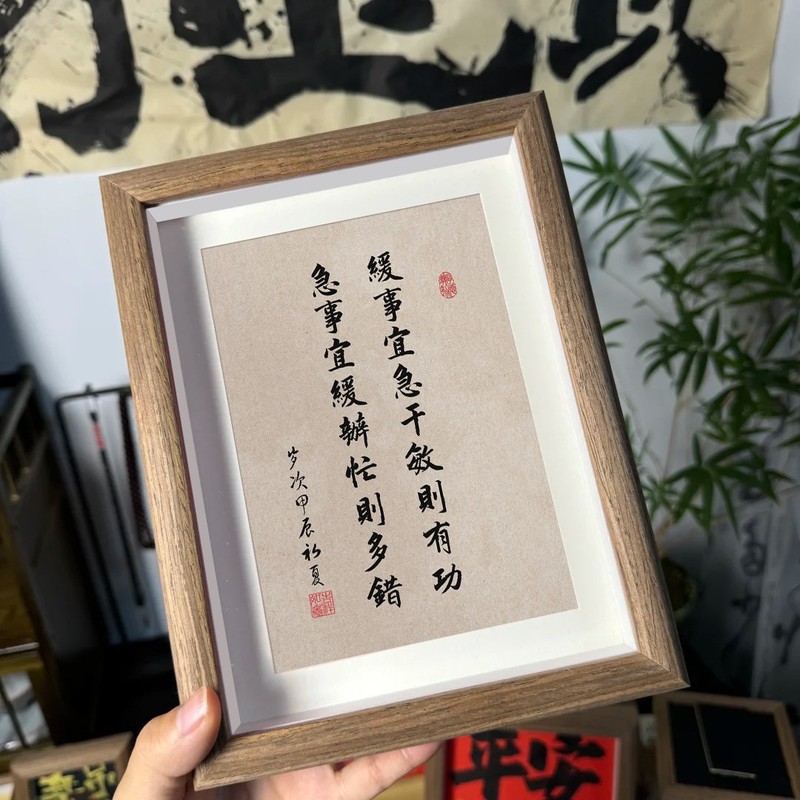 緩事宜急干敏則有功
急事宜緩辦忙則多錯
岁次甲辰初夏
平安